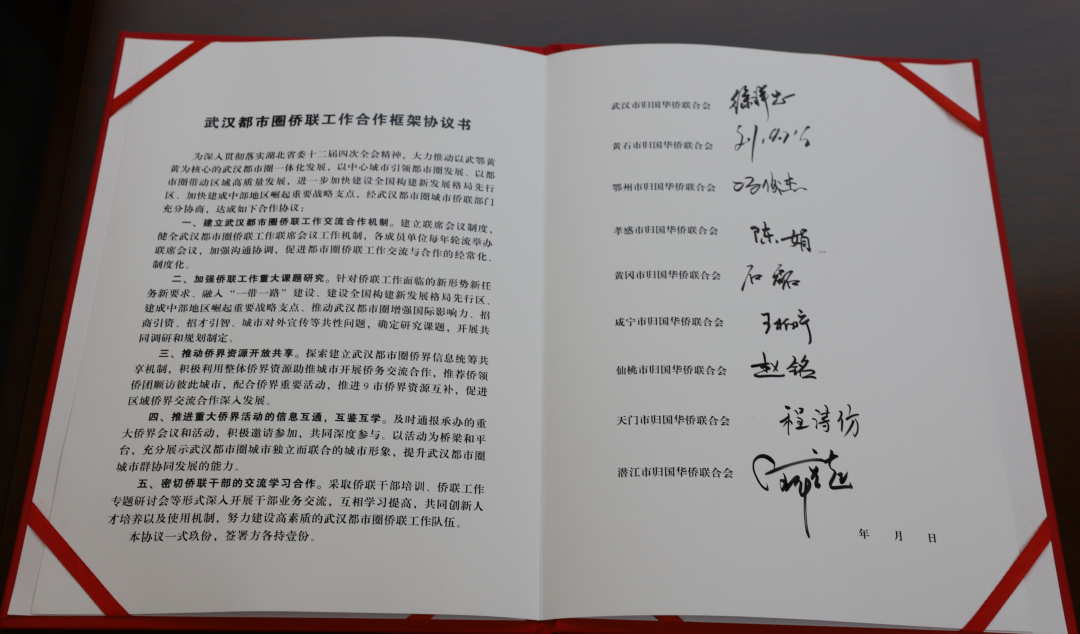 武汉都市圈侨联工作合作框架协议书
为深入贯彻落实湖北省委十二届四次全会精神，大力推动以武鄂黄
黄为核心的武汉都市圈一体化发展，以中心城市引领都市圈发展、以都
市圈带动区域高质量发展，进一步加快建设全国构建新发展格局先行
区、加快建成中部地区崛起重要战略支点，经武汉都市圈城市侨联部门
充分协商，达成如下合作协议：
一、建立武汉都市圈侨联工作交流合作机制。建立联席会议制度，
健全武汉都市圈侨联工作联席会议工作机制，各成员单位每年轮流举办
联席会议，加强沟通协调，促进都市圈侨联工作交流与合作的经常化、
制度化。
二、加强侨联工作重大课题研究。针对侨联工作面临的新形势新任
务新要求、融入“一带一路”建设、建设全国构建新发展格局先行区、
建成中部地区崛起重要战略支点、推动武汉都市圈增强国际影响力、招
商引资、招才引智、城市对外宣传等共性问题，确定研究课题，开展共
同调研和规划制定。
三、推动侨界资源开放共享。探索建立武汉都市圈侨界信息统筹共
享机制，积极利用整体侨界资源助推城市开展侨务交流合作，推荐侨领
侨团顺访彼此城市，配合侨界重要活动，推进9市侨界资源互补，促进
区域侨界交流合作深入发展。
四、推进重大侨界活动的信息互通，互鉴互学。及时通报承办的重
大侨界会议和活动，积极邀请参加，共同深度参与。以活动为桥梁和平
台，充分展示武汉都市圈城市独立而联合的城市形象，提升武汉都市圈
城市群协同发展的能力。
五、密切侨联干部的交流学习合作。采取侨联干部培训、侨联工作
专题研讨会等形式深入开展干部业务交流，互相学习提高，共同创新人
才培养以及使用机制，努力建设高素质的武汉都市圈侨联工作队伍。
本协议一式玖份，签署方各持壹份。
武汉市归国华侨联合会
黄石市归国华侨联合会
鄂州市归国华侨联合会 冯俊杰
孝感市归国华侨联合会 陈娟
黄冈市归国华侨联合会 石磊
咸宁市归国华侨联合会
仙桃市归国华侨联合会 赵铭
天门市归国华侨联合会 程诗仿
潜江市归国华侨联合会
年 月 日